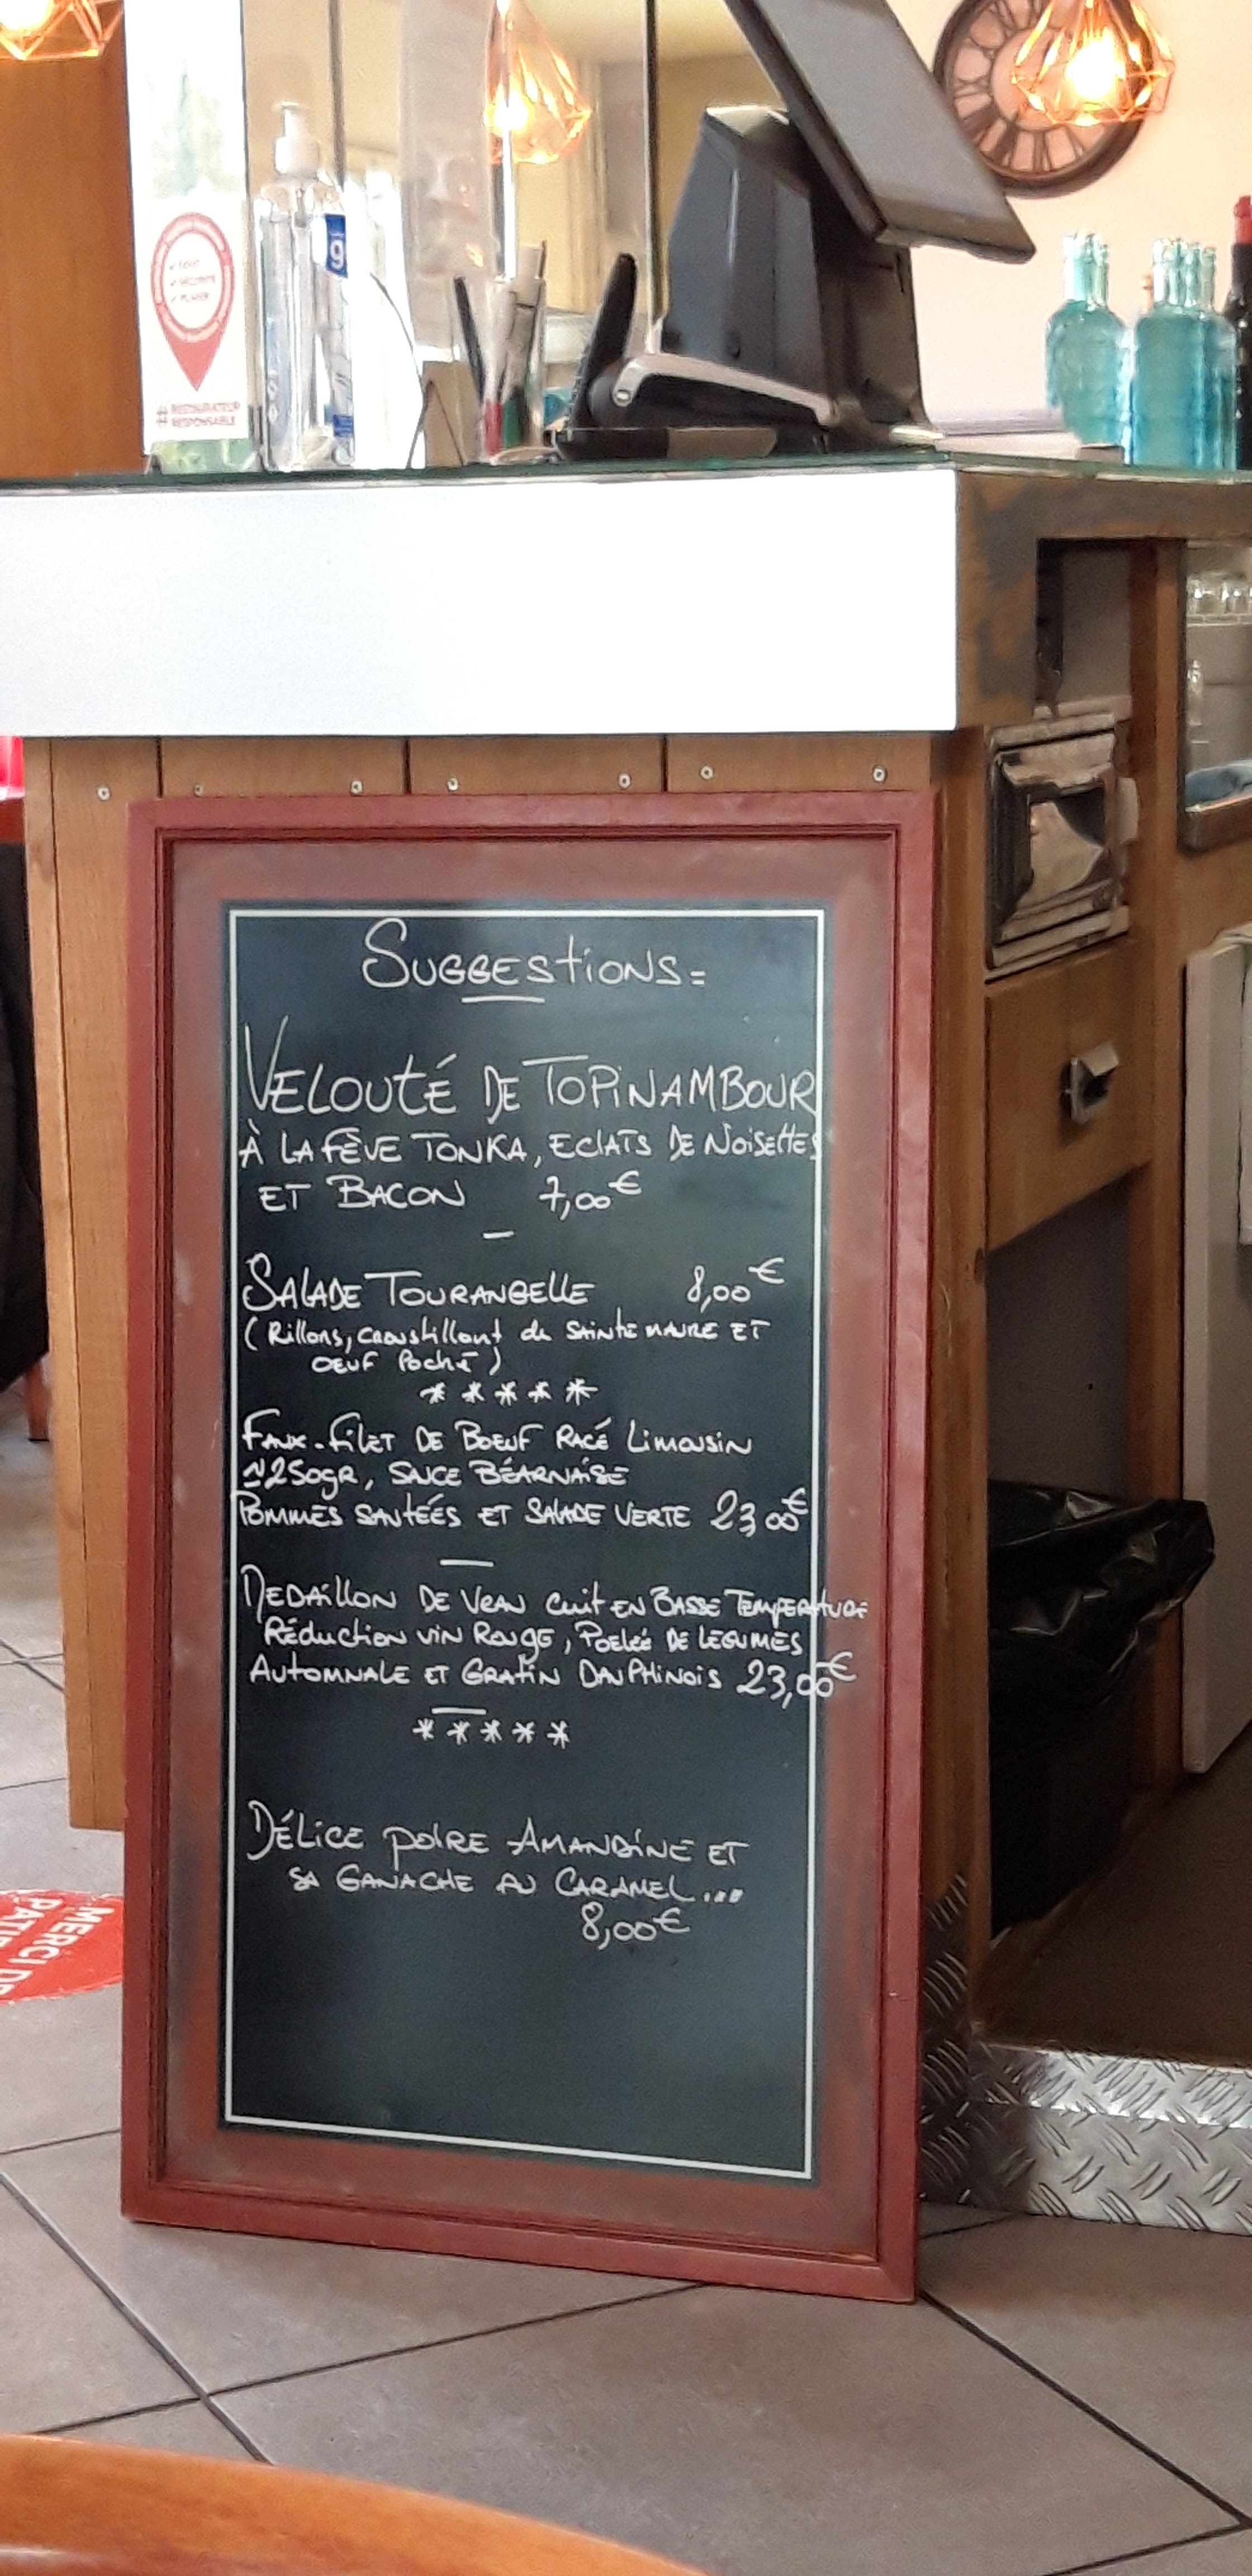 g
# RESTAURATEUR
RESPONSABLE
SUGGESTIONS=
VELOUTÉ DE TOPINAMBOUR
À LA FÈVE TONKA, ECLATS DE NOISETTES
ET BACON 7,00€
SALADE TOURANGELLE 8,00€
(Rillons, croustillant de SAINTE MAURE ET
OEUF Poché)
*****
FAUX-FILET DE BOEUF RACÉ LIMOUSIN
≃250GR, SAUCE BÉARNAISE
POMMES SAUTÉÉS ET SALADE VERTE 23 00€
MEDAILLON DE VEAU CUIT EN BASSE TEMPERATURE
Réduction VIN ROUGE, POELÉE DE LEGUMES
AUTOMNALE ET GRATIN DAUPHINOIS 23,00€
*****
DÉLICE POIRE AMANDINE ET
SA GANACHE AU CARAMEL...
8,00€
MERCI DE